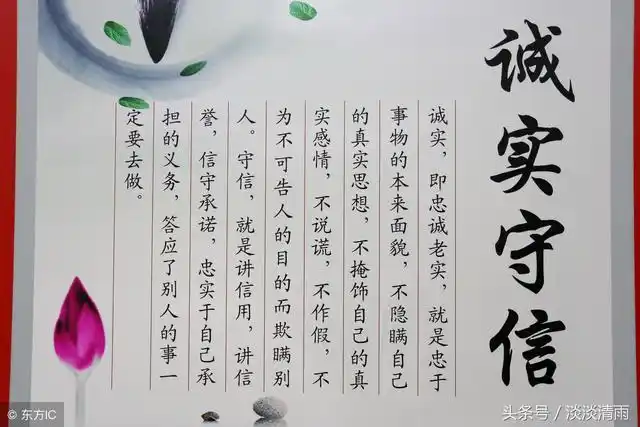 诚实守信
诚实，即忠诚老实，就是忠于
事物的本来面貌，不隐瞒自己
的真实思想，不掩饰自己的真
实感情，不说谎，不作假，不
为不可告人的目的而欺瞒别
人。守信，就是讲信用，讲信
誉，信守承诺，忠实于自己承
担的义务，答应了别人的事一
定要去做。
© 东方IC
头条号 / 淡淡清雨